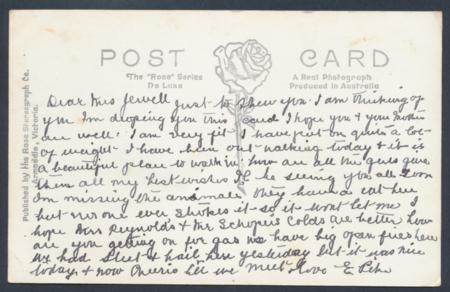 POST CARD
The "Rose" Series
De Luxe
A Real Photograph
Produced in Australia
Published by the Rose Stereograph Co.
Armadale, Victoria.
Dear Mrs Jewell just to show you I am thinking of
you I'm droping you this card I hope you & your Mother
are well. I am very fit I have put on quite a lot
of weight I have been out walking today & it is
a beautiful place to walk in how are all the girls give
them all my best wishes I'll be seeing you all soon
I'm missing the animals, they have a cat here
but no one ever strokes it so it wont let me I
hope Mrs Reynolds & Mr Colds are better how
are you getting on for gas we have big open fires here
we had sleet & hail here yesterday but it was nice
today & now Cheerio till we meet Love E